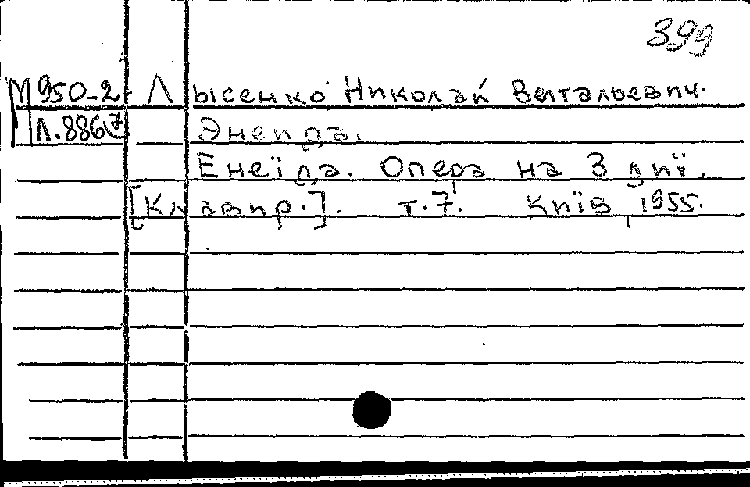 399
М950-2 Лысенко Николай Витальевич.
Л.886(7) Энеида.
Енеїда. Опера на 3 дії.
[Клавир.]. т.7. Київ, 1955.